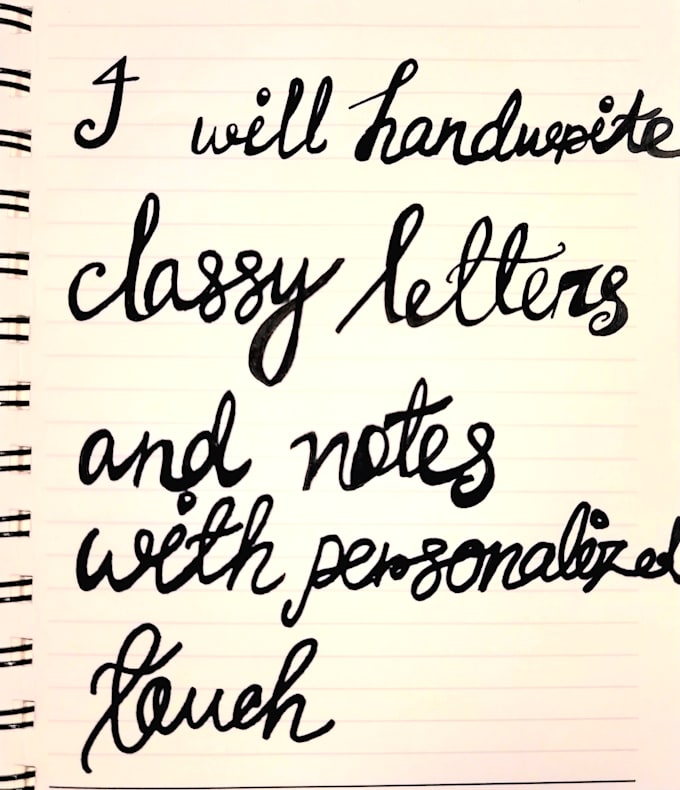 I will handwrite
classy letters
and notes
with personalized
touch